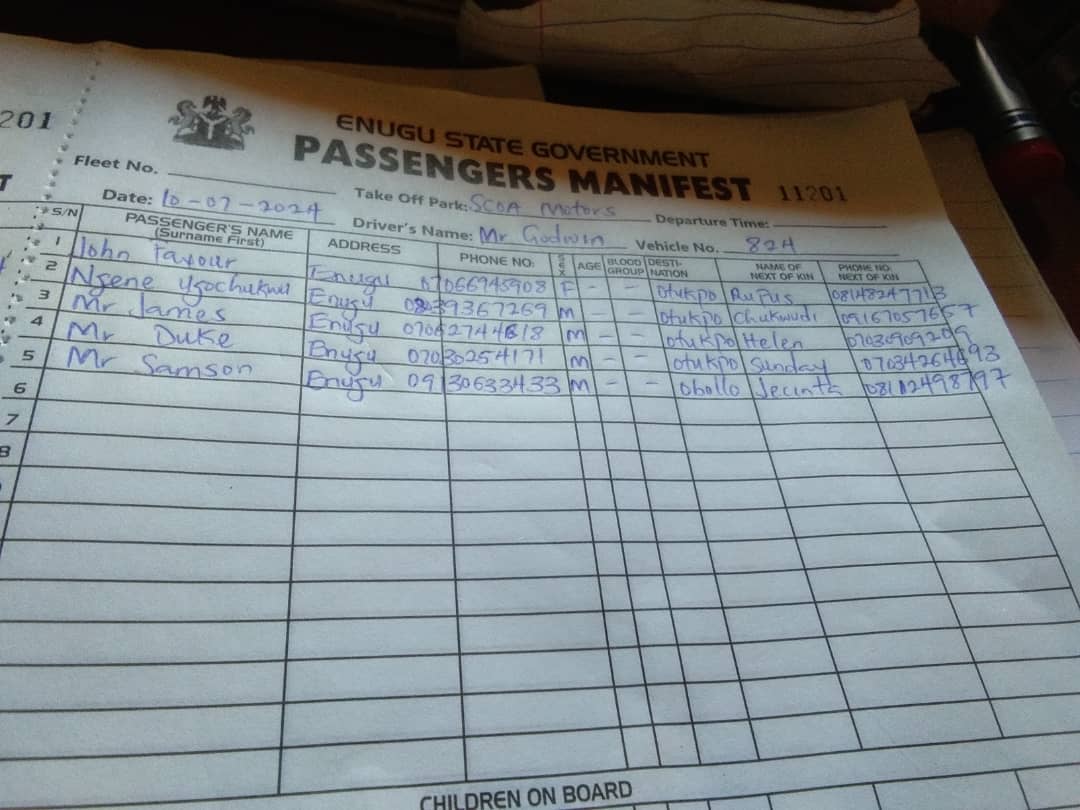 201
ENUGU STATE GOVERNMENT
PASSENGERS MANIFEST 11201
Fleet No.
Date: 10-07-2024 Take Off Park: SCOA Motors Departure Time:
Driver's Name: Mr Godwin Vehicle No. 824
S/N PASSENGER'S NAME (Surname First) ADDRESS PHONE NO: SEX AGE BLOOD GROUP DESTI-NATION NAME OF NEXT OF KIN PHONE NO: NEXT OF KIN
1 John Favour Enugu 07066945908 F - - Otukpo Rufus 08148247713
2 Ngene Ugochukwu Enugu 08039367269 M - - Otukpo Chukwudi 09167057657
3 Mr James Enugu 07062744618 M - - Otukpo Helen
4 Mr Duke Enugu 07030254171 M - - Otukpo Sunday
5 Mr Samson Enugu 09130633433 M - - Obollo Jecinta
6
7
8
CHILDREN ON BOARD